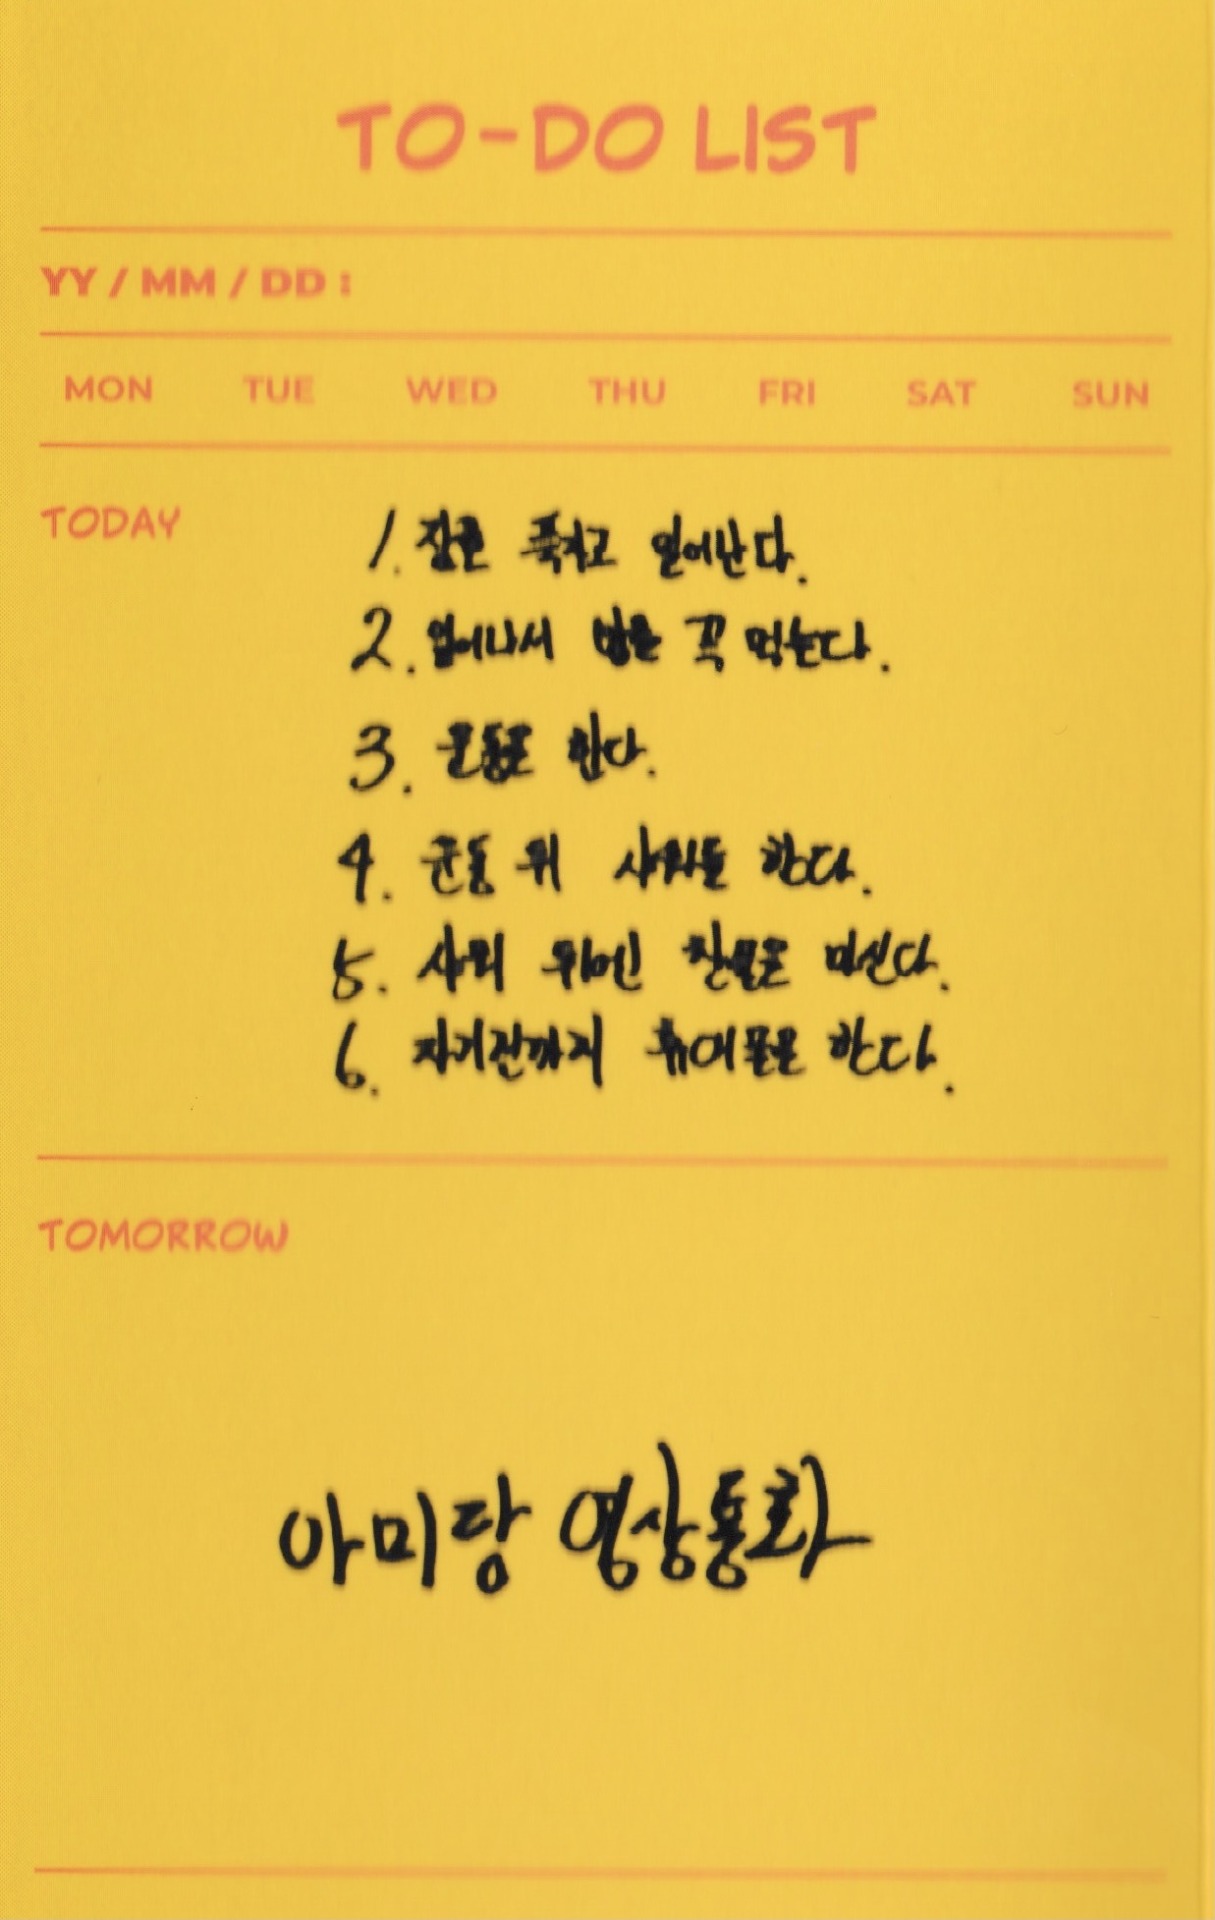 TO-DO LIST
YY / MM / DD :
MON TUE WED THU FRI SAT SUN
TODAY
1. 잠을 푹자고 일어난다.
2. 일어나서 밥을 꼭 먹는다.
3. 운동을 한다.
4. 운동 뒤 샤워를 한다.
5. 샤워 뒤에 찬물을 마신다.
6. 자기전까지 휴대폰을 한다.
TOMORROW
아미랑 영상통화